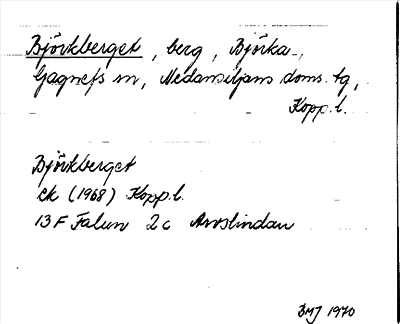 Björkberget, berg, Björka,
Gagnefs sn, Nedansiljans doms. tg,
Kopp. l.
Björkberget
ek (1968) Kopp. l.
13 F Falun 2 c Arvslindan
BMJ 1970